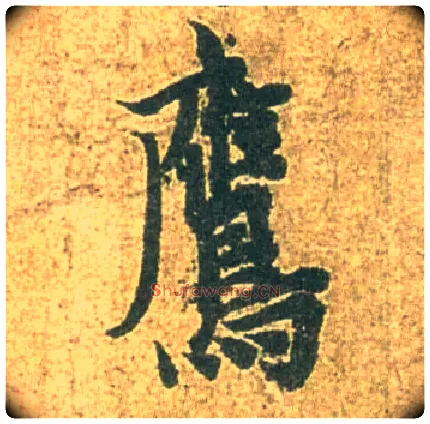 鷹
Shufawang.CN